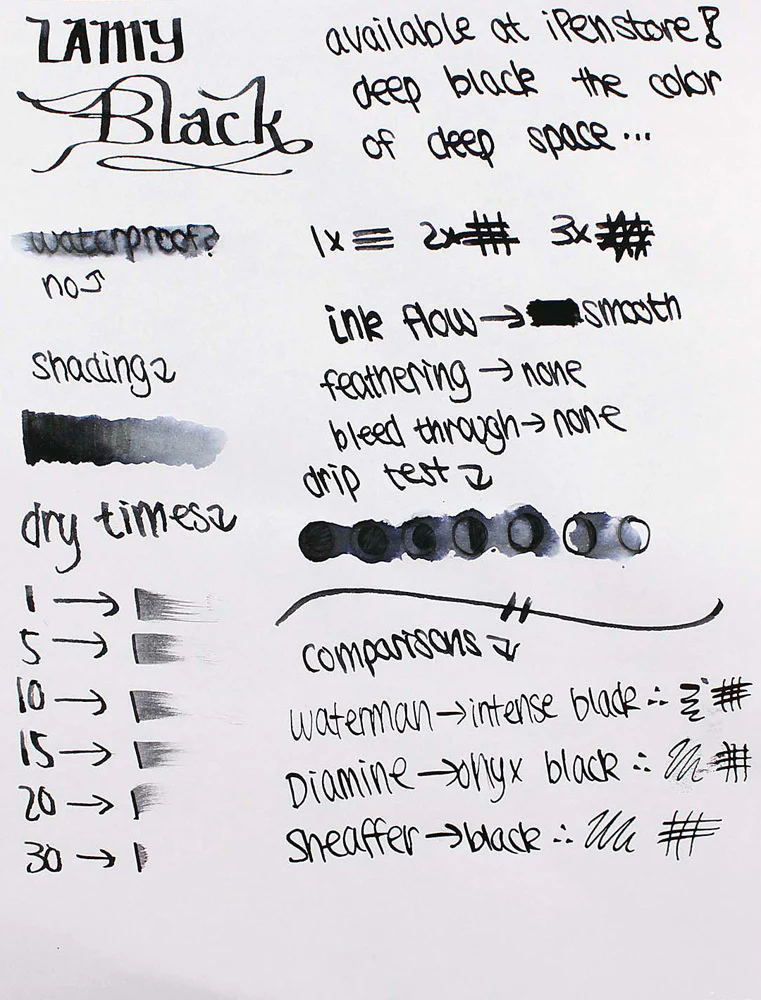 LAMY
Black
available at iPenstore!
deep black the color
of deep space...
waterproof?
no
1x 2x 3x
ink flow → smooth
feathering → none
bleed through → none
drip test
shading
dry times
1 →
5 →
10 →
15 →
20 →
30 →
comparisons
Waterman → intense black ∴
Diamine → onyx black ∴
Sheaffer → black ∴